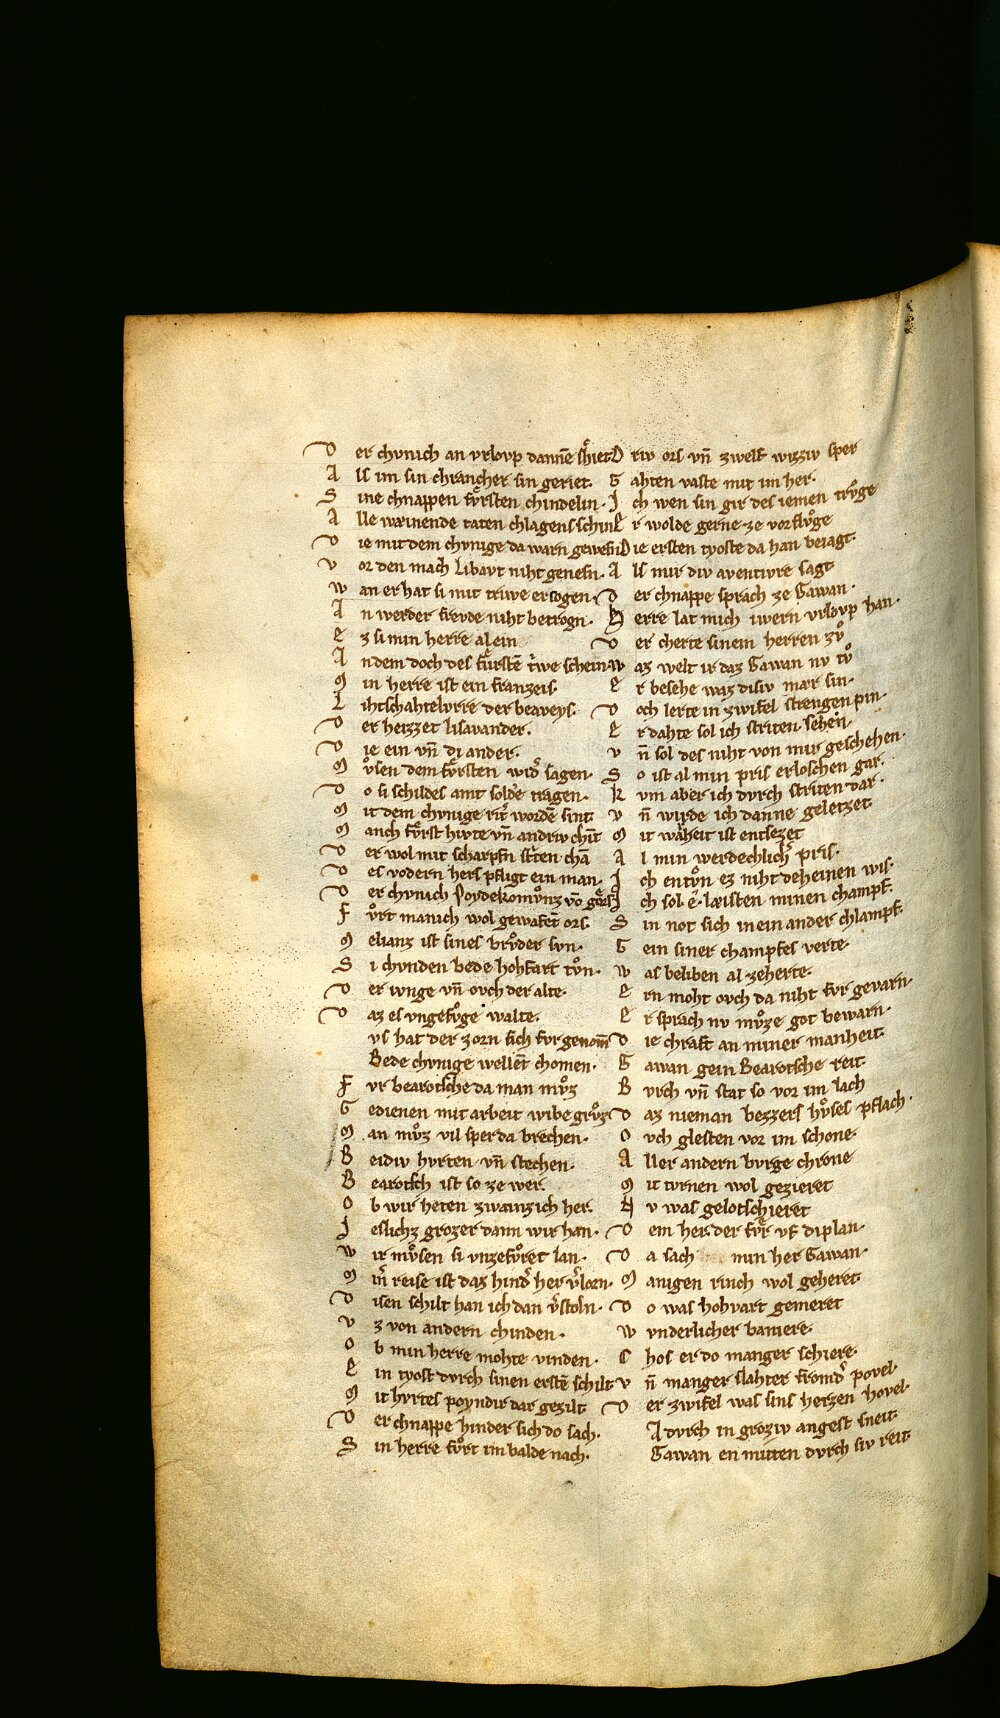 D er chvnich an vrlovp dannē schiet
A ls im sin chrancher sin geriet.
S ine chnappen fv̊rsten chindelin.
A lle wæinende taten chlagens schin
D ie mit dem chvnige da warn gewesn̄
V or den mach libavt niht genesn.
W an er hat si mit triwe erzogen.
A n werder frevde niht betrogn.
E z si min herre alein
A n dem doch des fv̊rstē triwe schein
M in herre ist ein franzeis.
L ihtschahtelvrre der beaveys.
D er heizzet lisavander.
D ie ein vn̄ di ander.
M v̊sen dem fv̊rsten wid͛ sagen.
D o si schildes amt solde tragen.
M it dem chvnige rit͛ wordē sint
M anch fv̊rst hivte vn̄ andriv chīt
D er wol mit scharpfn striten chā
D es vodern hers pfligt ein man.
D er chvnich Poydekomv̊nz vō gors
F v̊rt manich wol gewafēt ors.
M elianz ist sines brv̊der svn.
S i chvnden bede hohfart tv̊n.
D er ivnge vn̄ ovch der alte.
D az es vngefv̊ge walte.
vs hat der zorn sich fvr genom̄
Bede chvnige wellēt chomen.
F vr bearotsche da man mv̊z
G edienen mit arbeit wibe grv̊z
M an mv̊z vil sper da brechen.
B eidiv hvrten vn̄ stechen.
B earotsch ist so ze wer.
O b wir heten zwainzich her.
I eslichz grozer dann wir han.
W ir mv̊sen si vnzefv̊ret lan.
M in͛ reise ist daz hind͛ her v͛lorn.
D isen schilt han ich dan v͛stoln.
V z von andern chinden.
O b min herre mohte vinden.
E in tyost dvrch sinen erstē schilt
M it hvrtes poyndir dar gezilt
D er chnappe hinder sich do sach.
S in herre fv̊rt im balde nach.
D riv ors vn̄ zwelf wizziv sper
G ahten vaste mit im her.
I ch wen sin gir des iemen trv̊ge
E r wolde gerne ze vorflv̊ge
D ie ersten tyoste da han beiagt.
A ls mir div aventivre sagt
D er chnappe sprach ze Gawan.
H erre lat mich iwern vrlovp han.
D er cherte sinem herren zv̊
W az welt ir daz Gawan nv tv̊
E r besehe waz disiv mær sin.
D och lerte in zwifel strengen pin.
E r dahte sol ich striten sehen.
V n̄ sol des niht von mir geschehen.
S o ist al min pris erloschen gar.
K vm aber ich dvrch striten dar.
V n̄ wirde ich danne geletzet
M it warheit ist entsezet
A l min werdechlich͛ pris.
I ch entv̊n ez niht deheinen wis.
I ch sol ê læisten minen champf.
S in not sich in ein ander chlampf.
G ein siner champfes verte
W as beliben al zeherte.
E rn moht ovch da niht fvr gevarn.
E r sprach nv mv̊ze got bewarn.
D ie chraft an miner manheit.
G awan gein Bearotsche reit.
B vrch vn̄ stat so vor im lach
D az nieman bezzers hv̊ses pflach.
O vch glesten vor im schone
A ller andern bvrge chrone
M it tvrnen wol gezieret
N v was gelotschieret
D em her der fv̊r vf diplan.
D a sach min her Gawan.
M anigen rinch wol geheret.
D o was hohvart gemeret
W vnderlicher baniere.
C hos er do manger schiere.
V n̄ manger slahter fromd͛ povel.
D er zwifel was sins herzen hovel.
A dvrch in groziv angest sneit.
Gawan en mitten dvrch siv reit